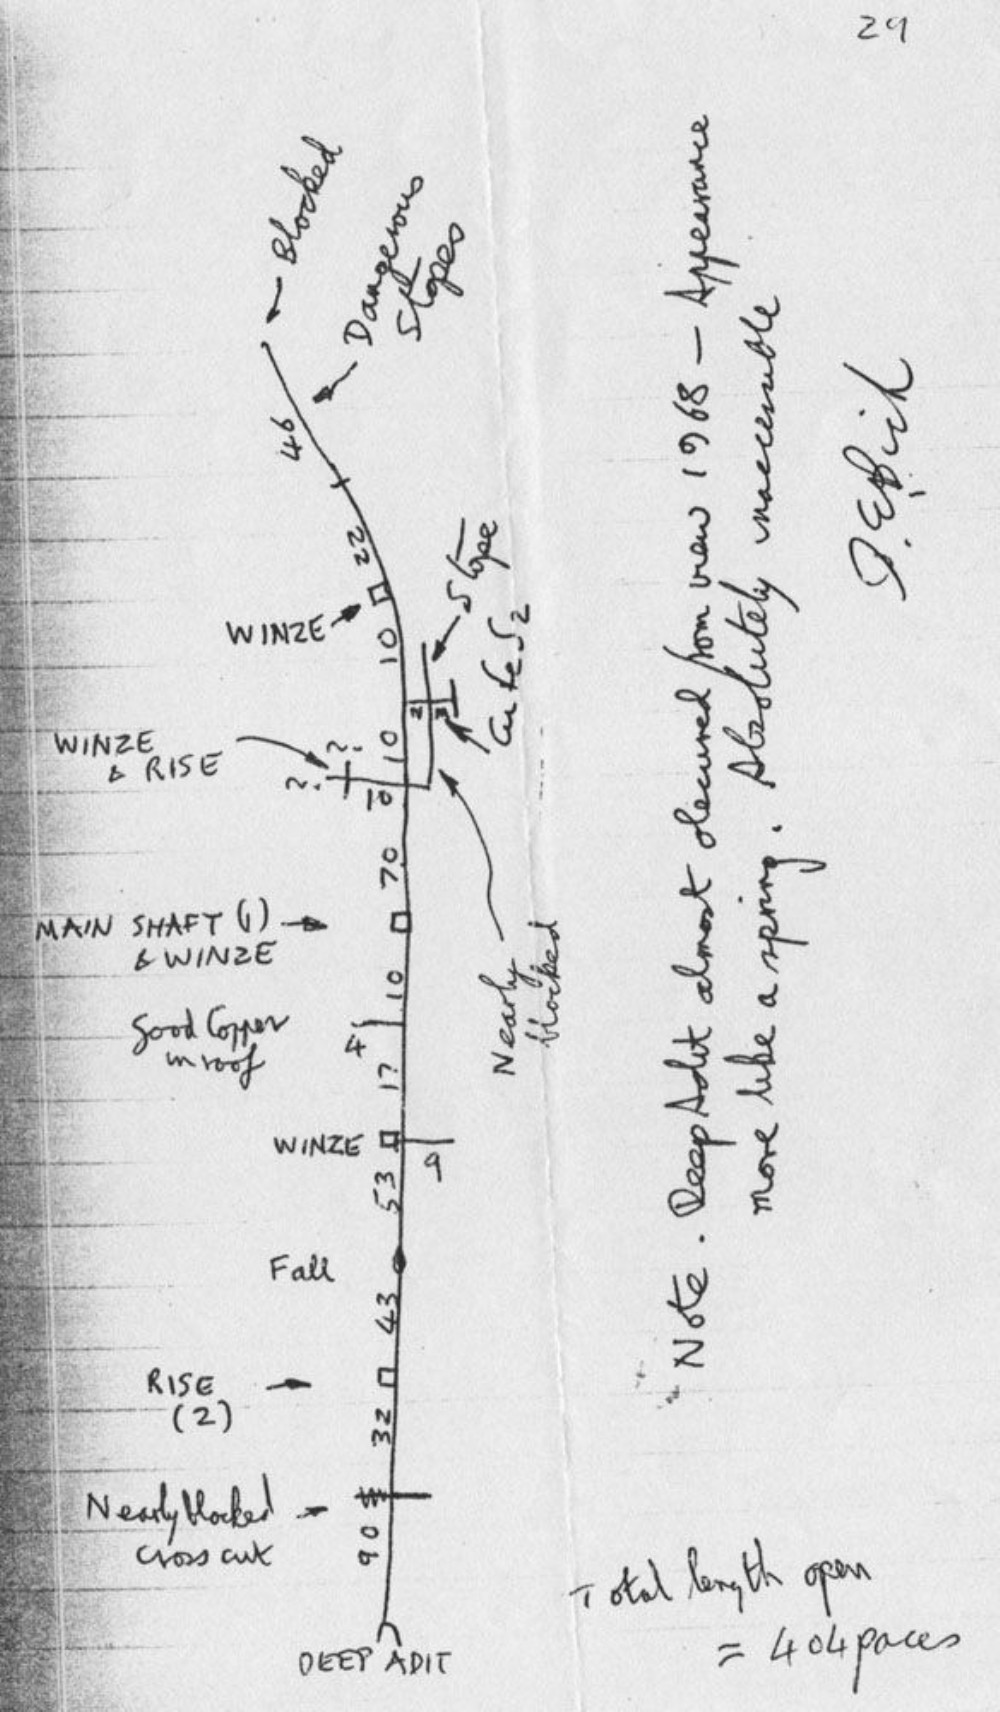 29
Blocked
Dangerous
Stopes
46
22
WINZE
10
Stope
CuFeS2
2
3
WINZE
& RISE
?
?
10
10
70
MAIN SHAFT (1)
& WINZE
10
Nearly
blocked
Good Copper
in roof
4
17
WINZE
9
53
Fall
43
RISE
(2)
32
Nearly blocked
cross cut
90
DEEP ADIT
Note. Deep Adit almost obscured from view 1968 – Appearance
more like a spring. Absolutely inaccessible
Total length open
= 404 paces